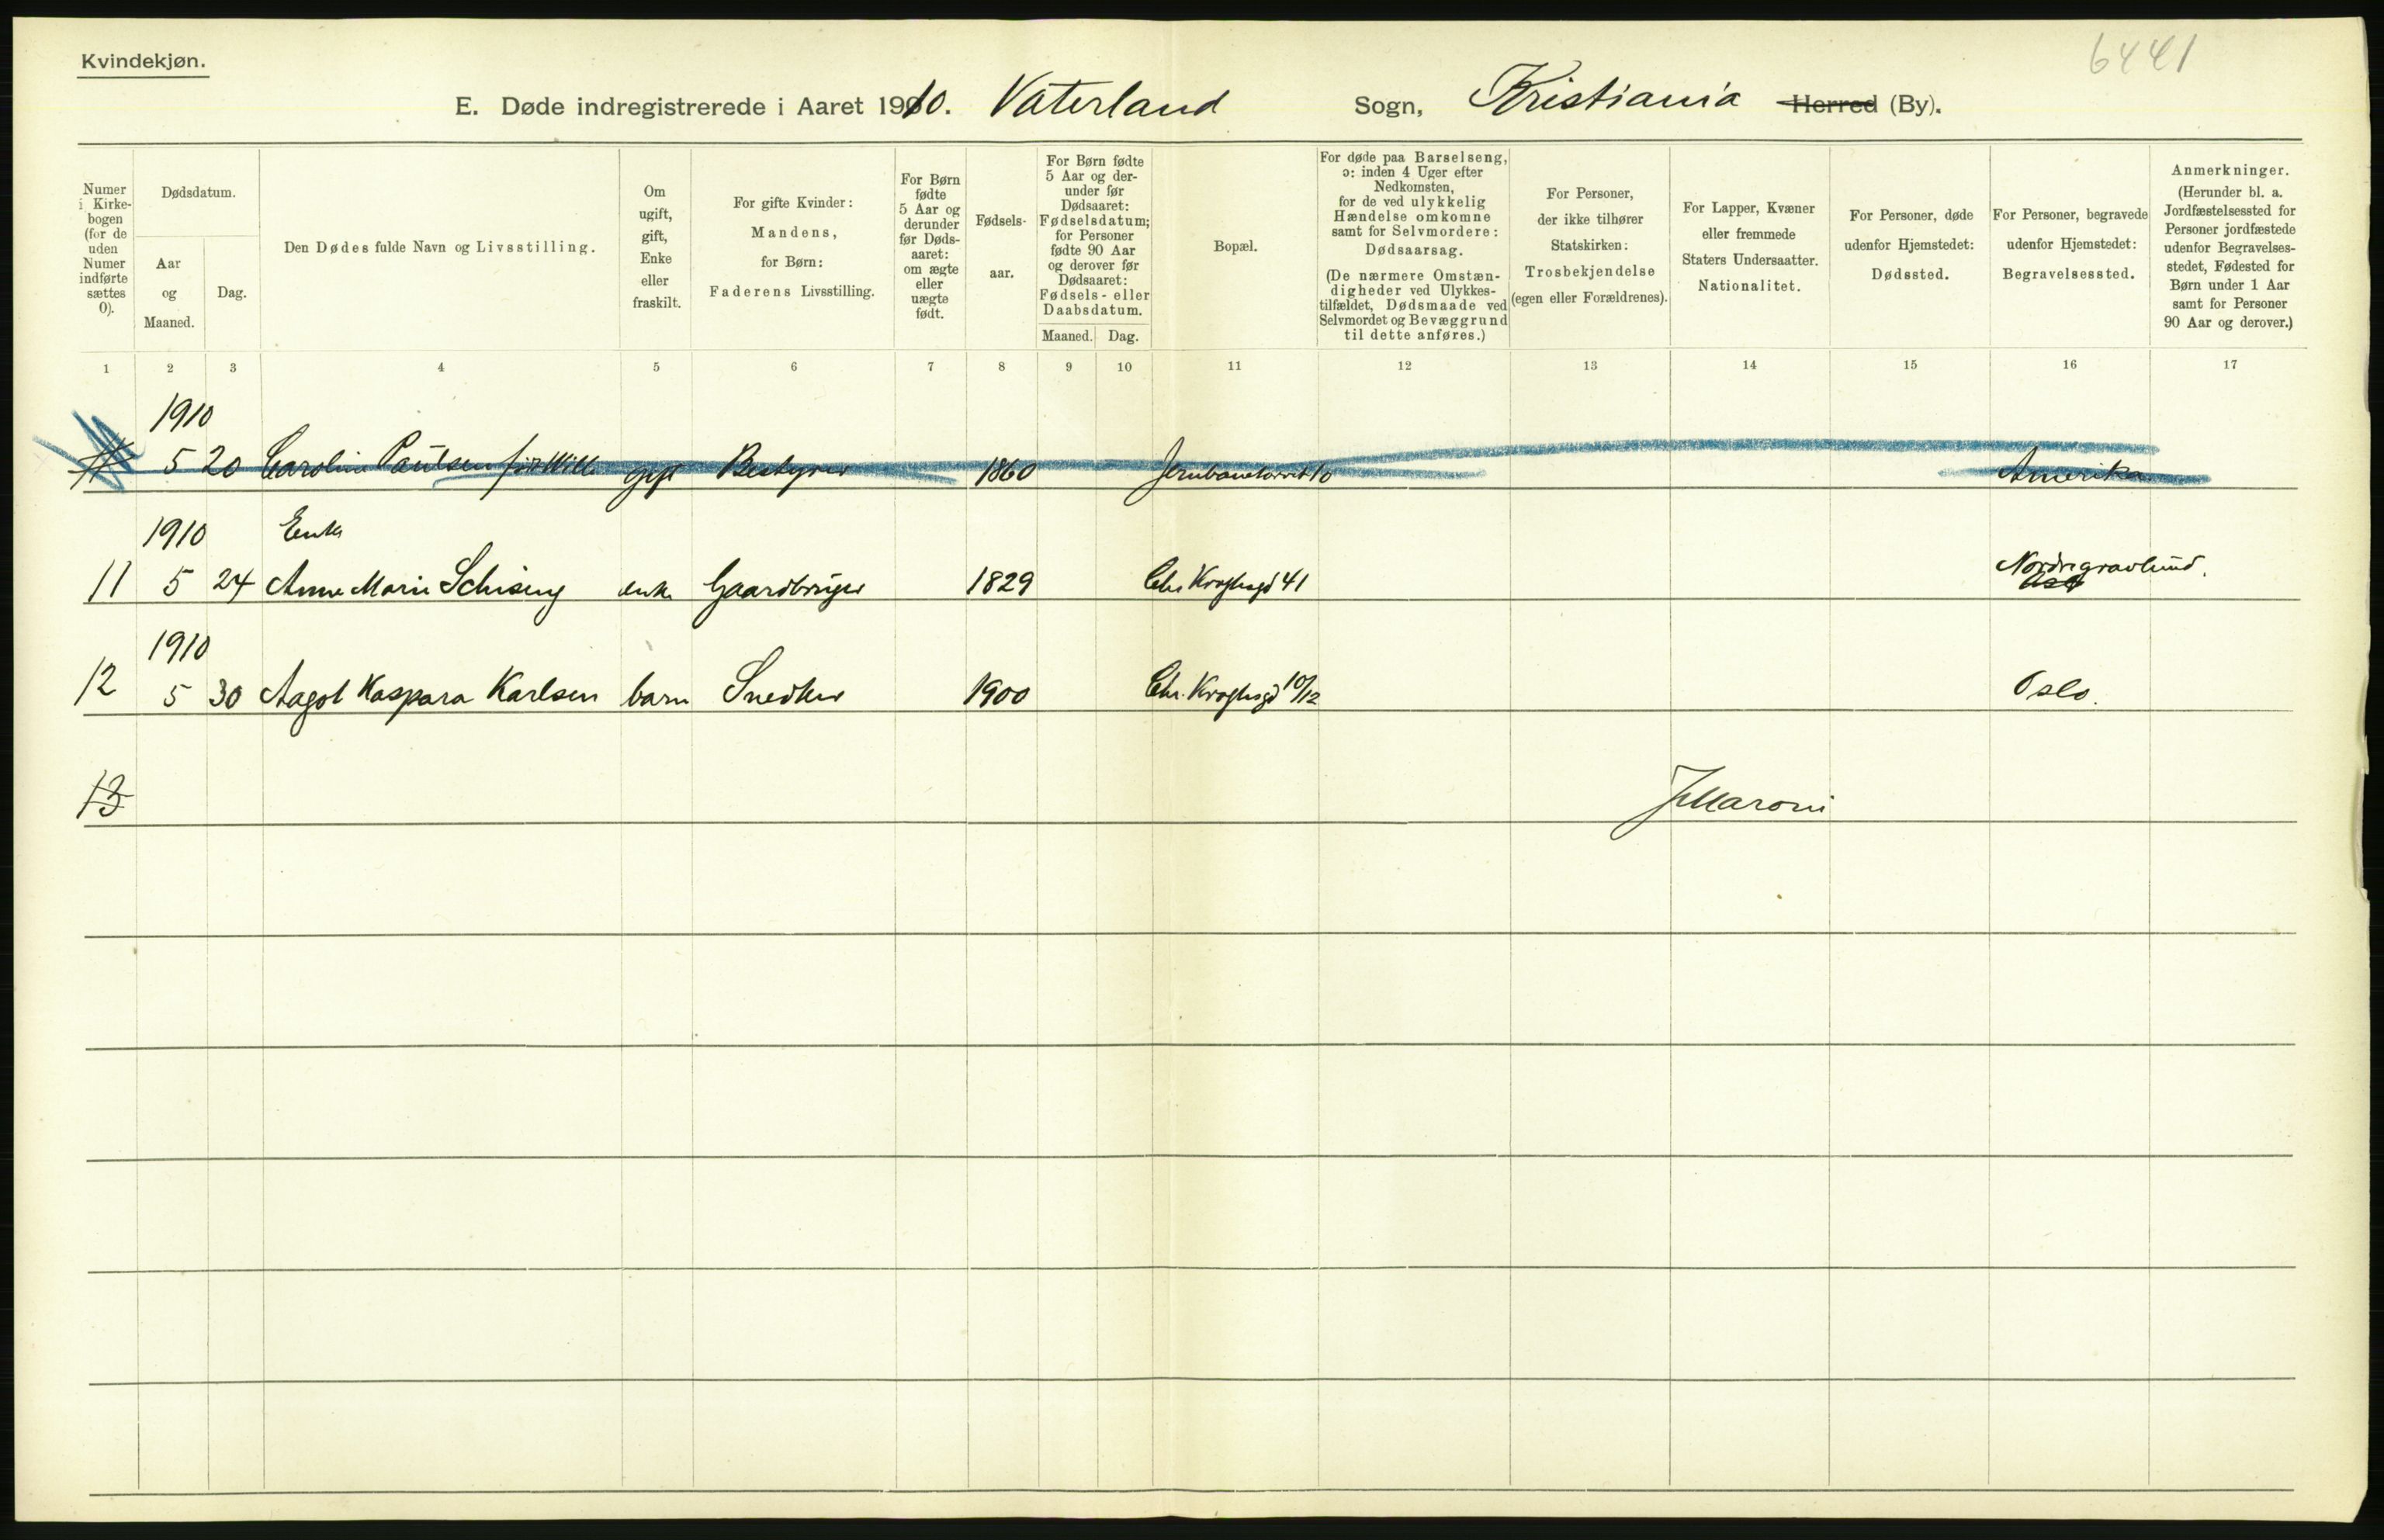 Kvindekjøn.
6441
E. Døde indregistrerede i Aaret 1910. Vaterland Sogn, Kristiania Herred (By).
Numer
i Kirke-
bogen
(for de
uden
Numer
indførte
sættes
0).
Dødsdatum.
Aar
og
Maaned.
Dag.
Den Dødes fulde Navn og Livsstilling.
Om
ugift,
gift,
Enke
eller
fraskilt.
For gifte Kvinder:
Mandens,
for Børn:
Faderens Livsstilling.
For Børn
fødte
5 Aar og
derunder
før Døds-
aaret:
om ægte
eller
uægte
født.
Fødsels-
aar.
For Børn fødte
5 Aar og der-
under før
Dødsaaret:
Fødselsdatum;
for Personer
fødte 90 Aar
og derover før
Dødsaaret:
Fødsels- eller
Daabsdatum.
Maaned. Dag.
Bopæl.
For døde paa Barselseng,
ɔ: inden 4 Uger efter
Nedkomsten,
for de ved ulykkelig
Hændelse omkomne
samt for Selvmordere:
Dødsaarsag.
(De nærmere Omstæn-
digheder ved Ulykkes-
tilfældet, Dødsmaade ved
Selvmordet og Bevæggrund
til dette anføres.)
For Personer,
der ikke tilhører
Statskirken:
Trosbekjendelse
(egen eller Forældrenes).
For Lapper, Kvæner
eller fremmede
Staters Undersaatter.
Nationalitet.
For Personer, døde
udenfor Hjemstedet:
Dødssted.
For Personer, begravede
udenfor Hjemstedet:
Begravelsessted.
Anmerkninger.
(Herunder bl. a.
Jordfæstelsessted for
Personer jordfæstede
udenfor Begravelses-
stedet, Fødested for
Børn under 1 Aar
samt for Personer
90 Aar og derover.)
1 2 3 4 5 6 7 8 9 10 11 12 13 14 15 16 17
1910
11 5 20 Caroline Paulsen gift Bestyrer 1860 Jernbanetorvet 10 Amerika
1910 Enke
11 5 24 Anne Marie Schiseng enke Gaardbruger 1829 Chr Kroghsgd 41 Nordregravlund.
1910
12 5 30 Aagot Kaspara Karlsen barn Snedker 1900 Chr. Kroghsgd 10/12 Oslo.
13 JMaroni